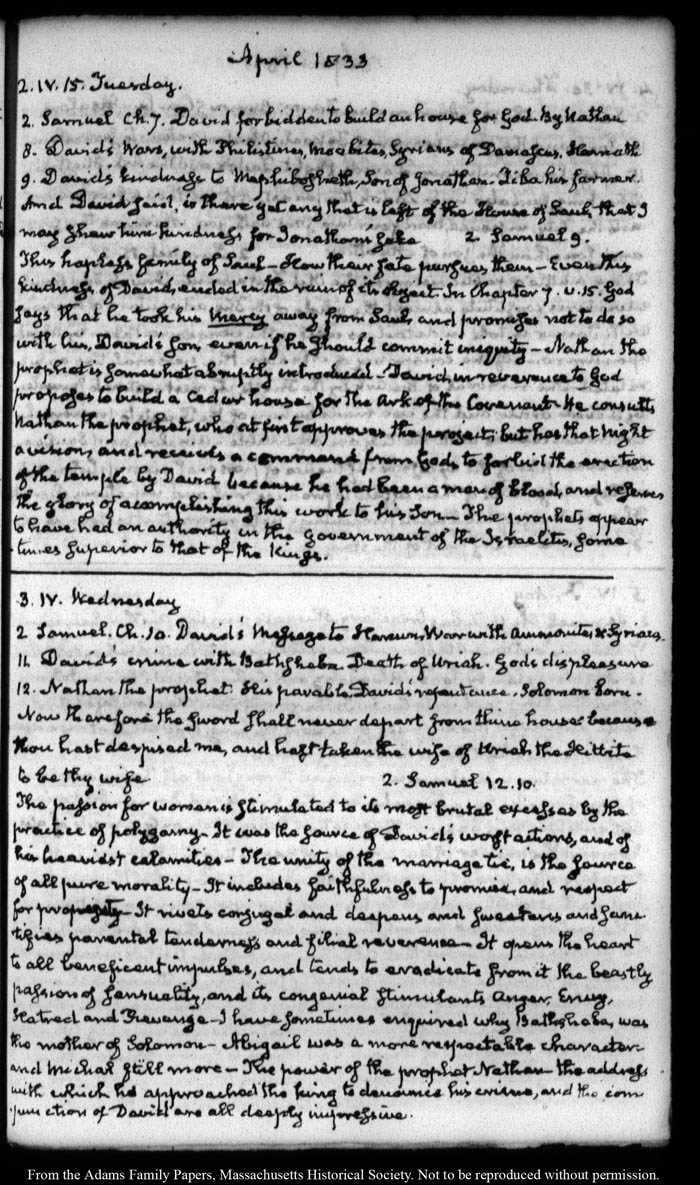 April 1833
2. IV. 15. Tuesday.
2. Samuel Ch. 7. David forbidden to build an house for God. By Nathan
8. David's Wars, with Philistines, Moabites, Syrians of Damascus, Hamath
9. David's kindness to Mephibosheth, Son of Jonathan. Ziba his farmer.
And David said, is there yet any that is left of the House of Saul, that I
may shew him kindness for Jonathan's sake 2. Samuel 9.
This hapless family of Saul – How their fate pursues them – Even this
kindness of David, ended in the ruin of its object. In Chapter 7. v. 15. God
says that he took his mercy away from Saul, and promises not to do so
with his, David's son, even if he should commit iniquity – Nathan the
prophet is somewhat abruptly introduced – David, in reverence to God
proposes to build a Cedar house for the Ark of the Covenant – He consults
Nathan the prophet, who at first approves the project; but has that night
a vision, and receives a command from God, to forbid the erection
of the temple by David because he had been a man of blood, and reserves
the glory of accomplishing this work to his Son – The prophets appear
to have had an authority in the government of the Israelites, some
times superior to that of the Kings.
3. IV. Wednesday
2 Samuel. Ch. 10. David's Message to Hanun, War with Ammonites & Syrians.
11. David's crime with Bathsheba. Death of Uriah. God's displeasure
12. Nathan the prophet. His parable. David's repentance. Solomon born.
Now therefore the sword shall never depart from thine house: because
thou hast despised me, and hast taken the wife of Uriah the Hittite
to be thy wife 2. Samuel 12.10.
The passion for women is stimulated to its most brutal excesses by the
practice of polygamy – It was the source of David's worst actions, and of
his heaviest calamities – The unity of the marriage tie, is the source
of all pure morality – It includes faithfulness to promise, and respect
for property – It rivets conjugal and deepens and sweetens and sanc
tifies parental tenderness and filial reverence – It opens the heart
to all beneficent impulses, and tends to eradicate from it the beastly
passion of sensuality, and its congenial stimulants Anger, Envy,
Hatred and Revenge – I have sometimes enquired why Bathsheba, was
the mother of Solomon – Abigail was a more respectable character
and Michal still more – The power of the prophet Nathan – the address
with which he approached the king to denounce his crime, and the com
punction of David are all deeply impressive.
From the Adams Family Papers, Massachusetts Historical Society. Not to be reproduced without permission.